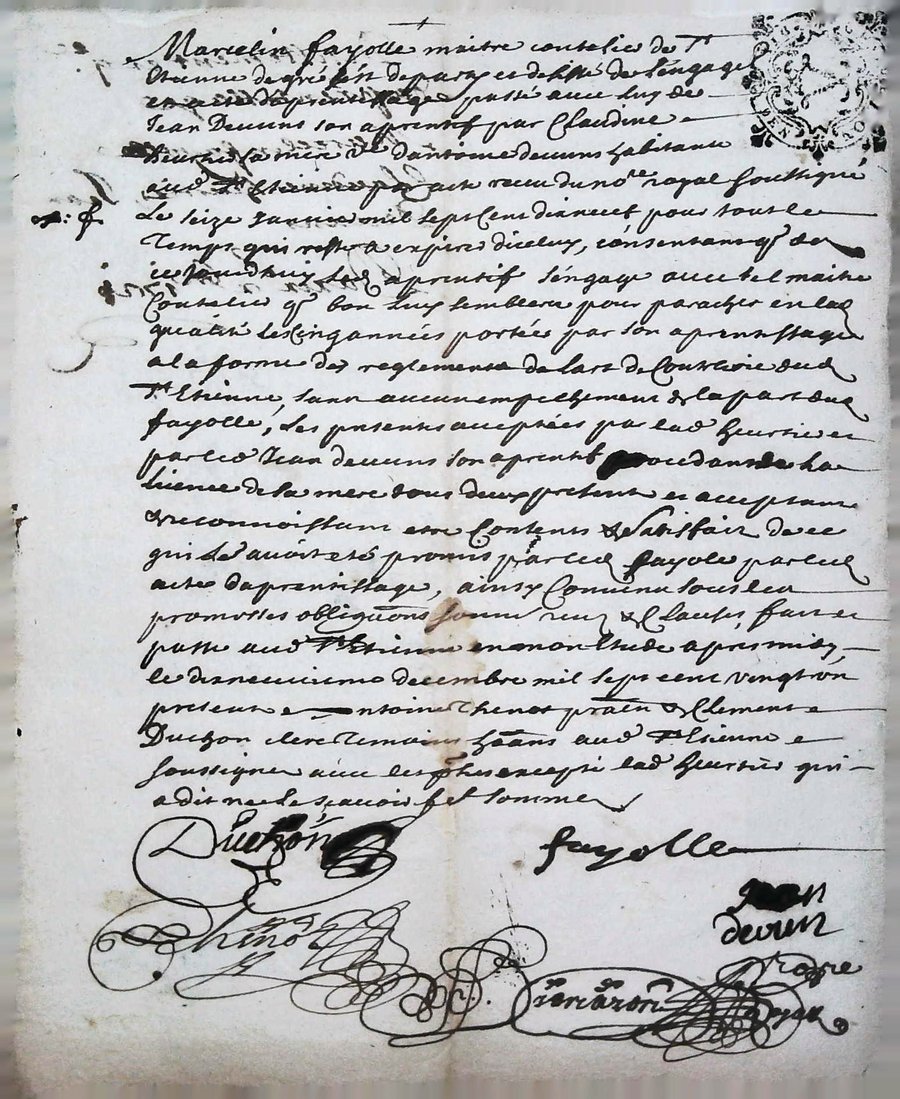 Marcelin fayolle maitre coutelie de St
Etienne de gré sest departy et desisté de lengage
en acte daprentissage passé avec luy de
Jean Devuns son aprentif par Claudine
heurtie sa mere ve dantoine devuns habitante
aud St Etienne par acte receu du nore royal soussigné
Le seize Janvie mil sept cent dixneuf pour tout le
Temps qui reste a expire diceluy, consentant q. de
ce jourdhuy led aprentif sengage avec tel maitre
Coutelie q. bon luy semblera pour parache en lad
qualité les cinq années portée par son aprentissage
a la forme des reglements de lart de Coutelerie dud
St Etienne, sans aucun empechement de la part dud
fayolle, Les presentes acceptées par lad heurtie et
par led Jean devuns son aprentif procedant de la
licence de sa mere tous deux present et acceptant
& reconnoissant etre Contents & satisfait de ce
qui Leur avoit eté promis par led fayole par led
acte daprentissage, ainsy Convenu sous les
promesses obligaons & Clauses, fait et
passé aud St Etienne en mon Etude apres midy,
le dixneuvieme decembre mil sept cent vingt un
present antoine Thenot praen & Clement
Duchon clerc temoins hans aud St Etienne
soussigne avec les pties excepté lad heurtie qui
a dit ne le scavoir f. sommée
Duchon
fayolle
Jean
devun
thenot